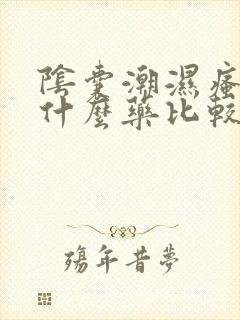 陰囊潮濕瘙
什麼藥比較
殤年昔夢